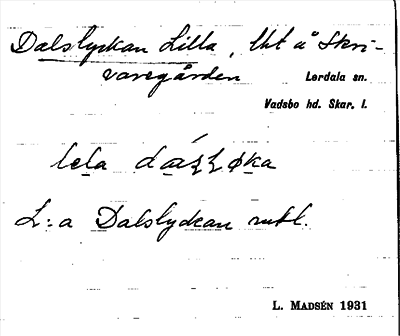 Dalslyckan Lilla, lht å Skri-
varegården
Lerdala sn.
Vadsbo hd. Skar. l.
L:a Dalslyckan
L. MADSÉN 1931